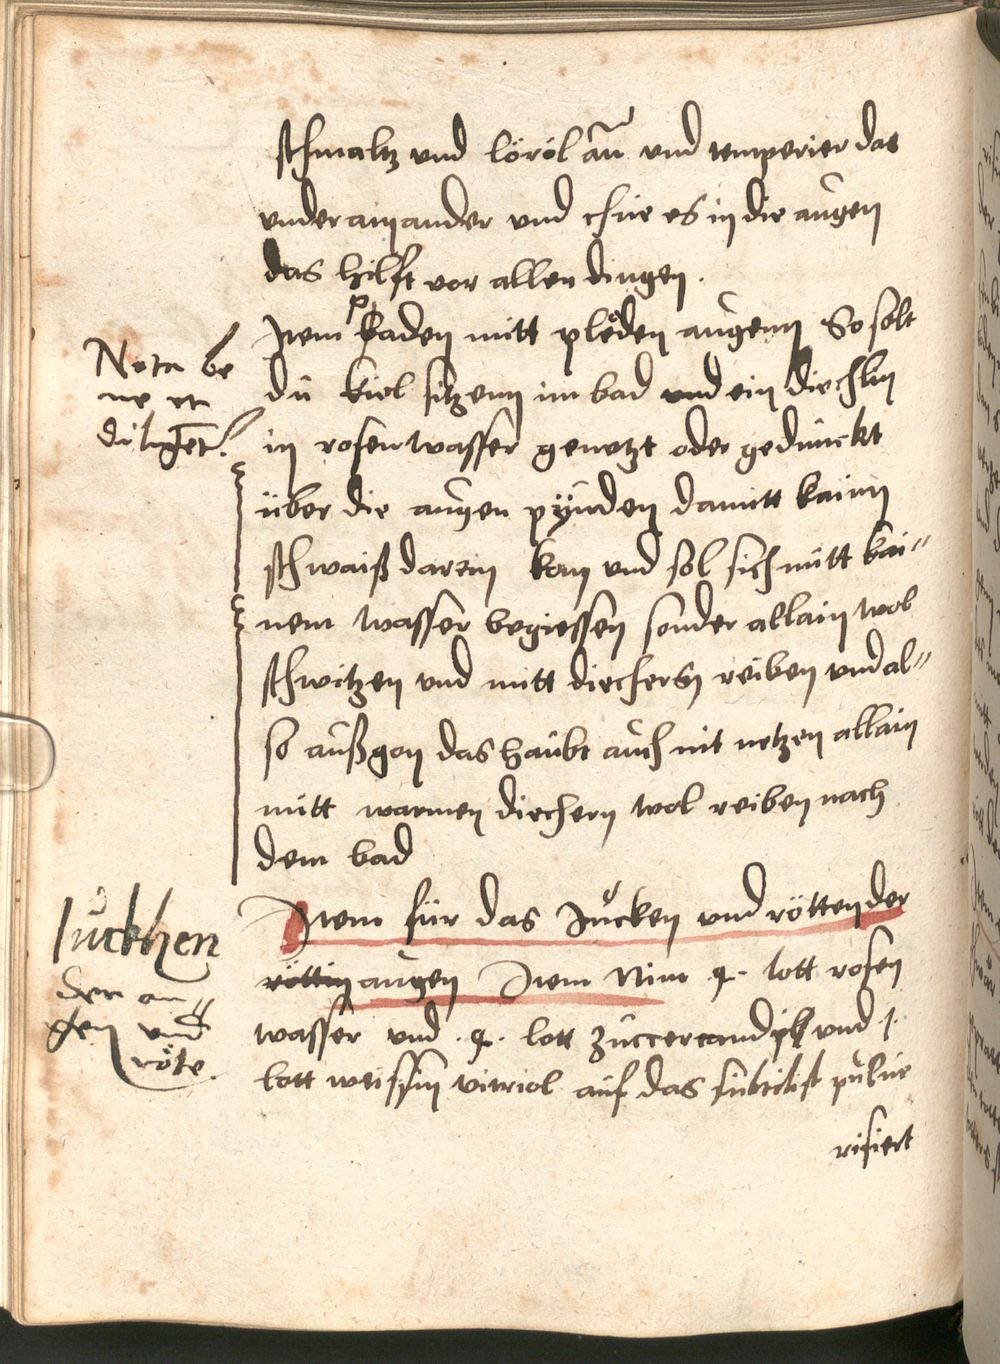 schmaltz vnd löröl an̄ vnd temperier das
vnderainander vnd thue es in die augen
das hilfft vor allen dingen.
Item paden mitt plöden augenn So solt
du kiel sitzenn im bad vnd ein diechlin
in rosenwasser genetzt oder gedunckt
über die augen pynden damitt kainn
schwaiß darein kom vnd sol sich mitt kai=
nem wasser begiessen sonder allain wol
schwitzen vnd mitt diechern reiben vnd al=
so außgon das haubt auch nit netzen allain
mitt warmen diechern wol reiben nach
dem bad
Nota be
ne et
diligeter!
Item für das Jucken vnd rötten der
augen Item Nim 4. lott rosen
wasser vnd .4. lott zuccercandi vnd 1.
lott weissin vitriol auf das subtilist pulue
risiert
Juckhen
der au=
gen vnd
röte.